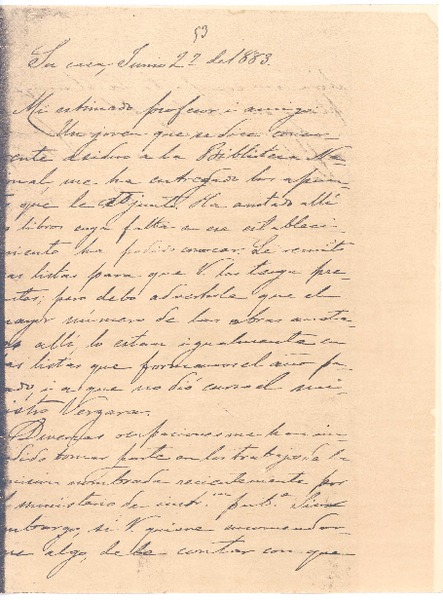 53
Su casa, Junio 22 de 1883.
Mi estimado profesor i amigo:
Un joven que se dice concu
ente asiduo a la Biblioteca Na
onal me ha entregado los apun
que le adjunto. Ha anotado allí
s libros cuya falta en ese estableci
miento ha podido conocer. Le remito
as listas para que V. las tenga pre
ntes; pero debo advertirle que el
mayor número de las obras anota
s allí lo están igualmente en
as listas que formamos el año pa
ado, i a que no dió curso el mi
istro Vergara.
Diversas ocupaciones me han im
edido tomar parte en los trabajos de la
nombrada recientemente por
el ministerio de instr.on pub.a Sin
embargo, si V. quiere encomendar
me algo, debe contar con que